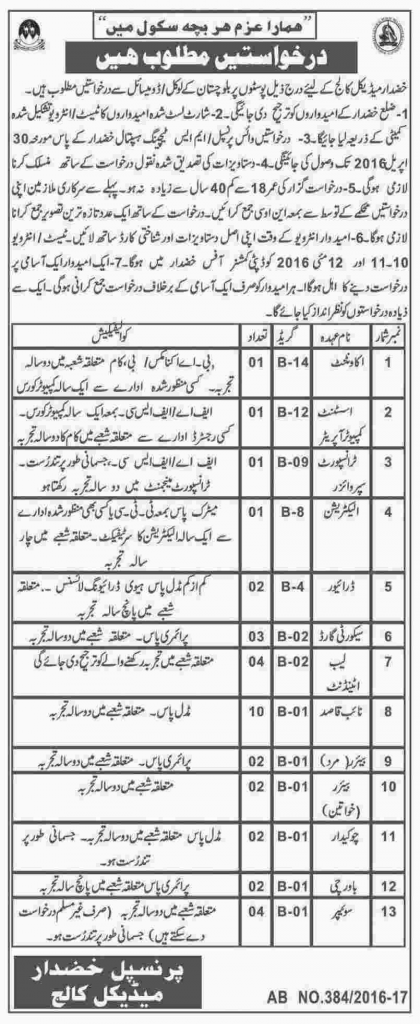 "ہمارا عزم ہر بچہ سکول میں"
درخواستیں مطلوب ہیں
خضدار میڈیکل کالج کے لیئے درج ذیل پوسٹوں پر بلوچستان کے لوکل/ڈومیسائل سے درخواستیں مطلوب ہیں۔
1- ضلع خضدار کے امیدواروں کو ترجیح دی جائیگی۔ 2- شارٹ لسٹ شدہ امیدواروں کا ٹیسٹ/انٹرویو تشکیل شدہ
کمیٹی کے ذریعہ لیا جائیگا۔ 3- درخواستیں وائس پرنسپل/ایم ایس ٹیچنگ ہسپتال خضدار کے پاس مورخہ 30
اپریل 2016 تک وصول کی جائیگی۔ 4- دستاویزات کی تصدیق شدہ نقول درخواست کے ساتھ منسلک کرنا
لازمی ہوگی۔ 5- درخواست گزار کی عمر 18 سے کم 40 سال سے زیادہ نہ ہو۔ پہلے سے سرکاری ملازمین اپنی
درخواستیں محکمے کے توسط سے بمعہ این او سی جمع کرائیں۔ درخواست کے ساتھ ایک عدد تازہ ترین تصویر جمع کرانا
لازمی ہوگا۔ 6- امیدوار انٹرویو کے وقت اپنی اصل دستاویزات اور شناختی کارڈ ساتھ لائیں۔ ٹیسٹ/انٹرویو
10-11 اور 12 مئی 2016 کو ڈپٹی کمشنر آفس خضدار میں ہوگا۔ 7- ایک امیدوار ایک آسامی پر
درخواست دینے کا اہل ہوگا۔ ہر امیدوار کو صرف ایک آسامی کے برخلاف درخواست جمع کرانی ہوگی۔ ایک سے
زیادہ درخواستوں کو نظر انداز کیا جائے گا۔
نمبر شمار نام عہدہ گریڈ تعداد کوالیفیکیشن
1 اکاونٹنٹ B-14 01 بی۔اے اکنامکس/بی۔کام متعلقہ شعبہ میں دو سالہ
تجربہ۔ کسی منظور شدہ ادارے سے ایک سالہ کمپیوٹر کورس
2 اسسٹنٹ B-12 01 ایف اے/ایف ایس سی۔ بمعہ ایک سالہ کمپیوٹر کورس۔
کمپیوٹر آپریٹر کسی رجسٹرڈ ادارے سے متعلقہ شعبے میں کام کا دو سالہ تجربہ
3 ٹرانسپورٹ B-09 01 ایف اے/ایف ایس سی، جسمانی طور پر تندرست۔
سپروائزر ٹرانسپورٹ مینجمنٹ میں دو سالہ تجربہ رکھتا ہو
4 الیکٹریشن B-8 01 میٹرک پاس بمعہ ٹی۔سی یا کسی بھی منظور شدہ ادارے
سے ایک سالہ الیکٹریشن کا سرٹیفکیٹ۔ متعلقہ شعبے میں چار
سالہ تجربہ
5 ڈرائیور B-4 02 کم از کم مڈل پاس ہیوی ڈرائیونگ لائسنس۔ متعلقہ
شعبے میں پانچ سالہ تجربہ
6 سیکورٹی گارڈ B-02 03 پرائمری پاس۔ متعلقہ شعبے میں دو سالہ تجربہ
7 لیب B-02 04 متعلقہ شعبے میں تجربہ رکھنے والے کو ترجیح دی جائے گی
اٹینڈنٹ
8 نائب قاصد B-01 10 مڈل پاس۔ متعلقہ شعبے میں دو سالہ تجربہ
9 بیئرر (مرد) B-01 02 پرائمری پاس۔ متعلقہ شعبے میں دو سالہ تجربہ
10 بیئرر B-01 02 متعلقہ شعبے میں دو سالہ تجربہ
(خواتین)
11 چوکیدار B-01 02 مڈل پاس متعلقہ شعبے میں دو سالہ تجربہ۔ جسمانی طور پر
تندرست ہو۔
12 باورچی B-01 02 پرائمری پاس متعلقہ شعبے میں پانچ سالہ تجربہ
13 سوئیپر B-01 04 متعلقہ شعبے میں دو سالہ تجربہ (صرف غیر مسلم درخواست
دے سکتے ہیں) جسمانی طور پر تندرست ہو۔
پرنسپل خضدار
میڈیکل کالج
AB NO.384/2016-17